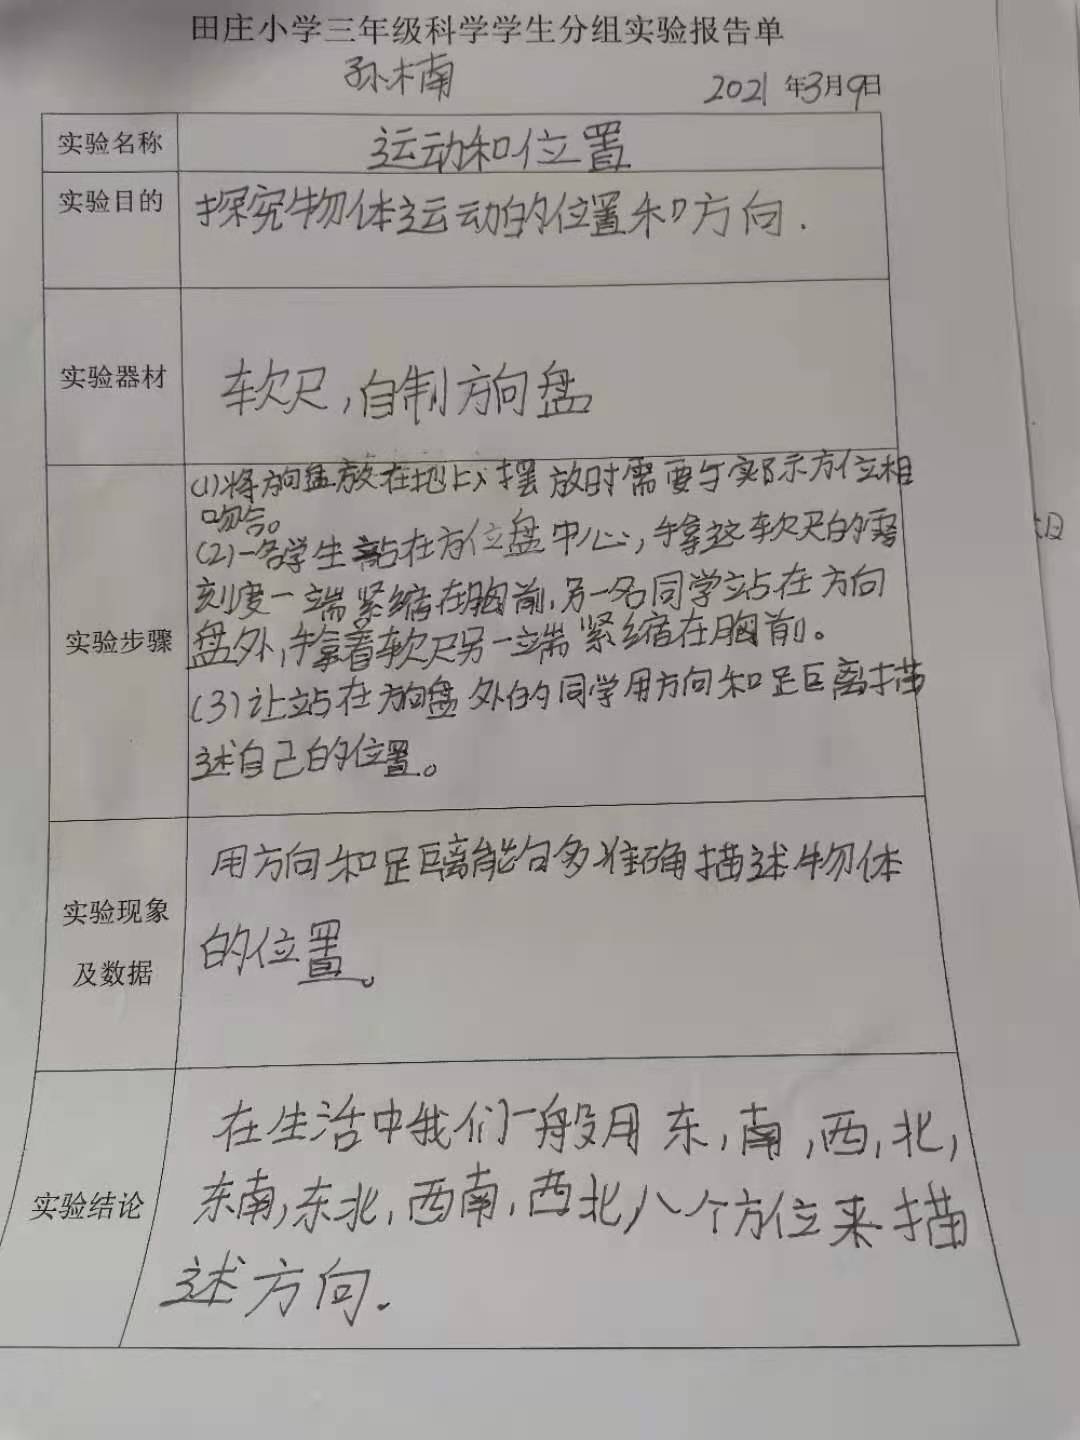 田庄小学三年级科学学生分组实验报告单
孙木南
2021 年3月9日
实验名称
运动和位置
实验目的
探究物体运动的位置和方向.
实验器材
软尺,自制方向盘
实验步骤
(1)将方向盘放在地上,摆放时需要与实际示方位相
吻合。
(2)一名学生站在方位盘中心,手拿这软尺的零
刻度一端紧缩在胸前,另一名同学站在方向
盘外,手拿着软尺另一端紧缩在胸前。
(3)让站在方向盘外的同学用方向和距离描
述自己的位置。
实验现象
及数据
用方向和距离能够准确描述物体
的位置。
实验结论
在生活中我们一般用东,南,西,北,
东南,东北,西南,西北,八个方位来描
述方向.